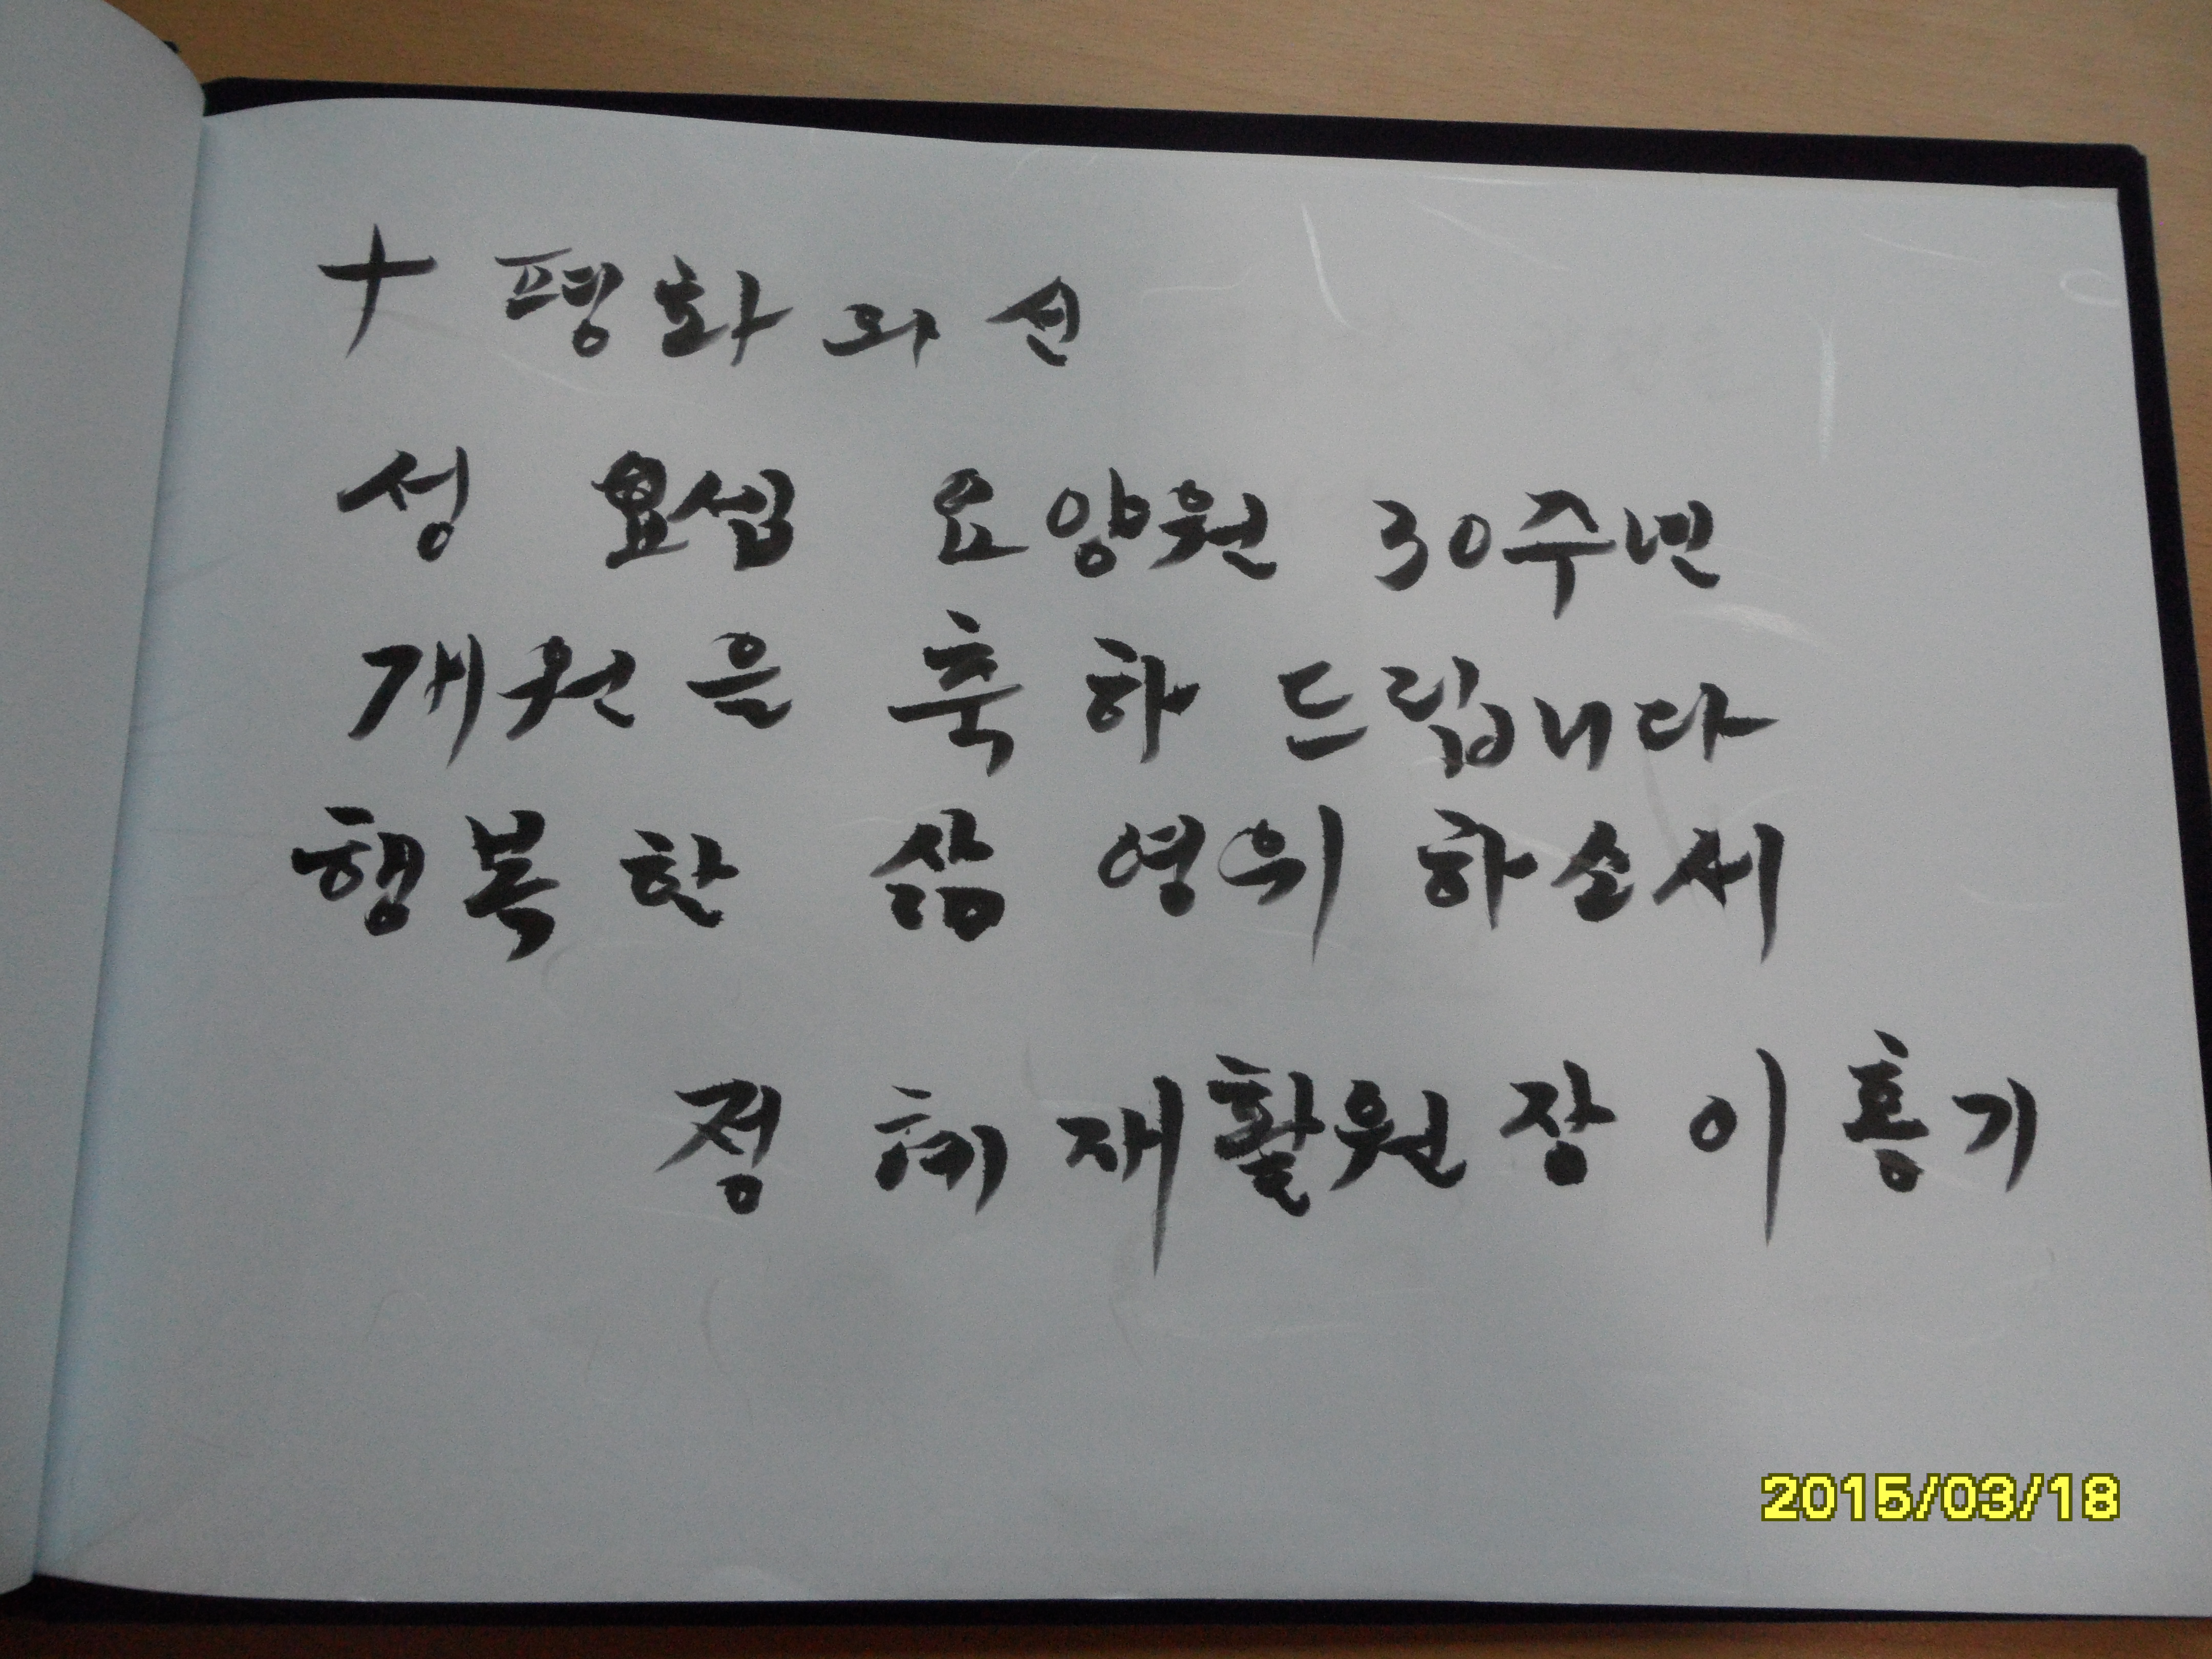 + 평화와 선
성 요셉 요양원 30주년
개원을 축하 드립니다
행복한 삶 영위 하소서
정혜재활원장 이흥기
2015/03/18